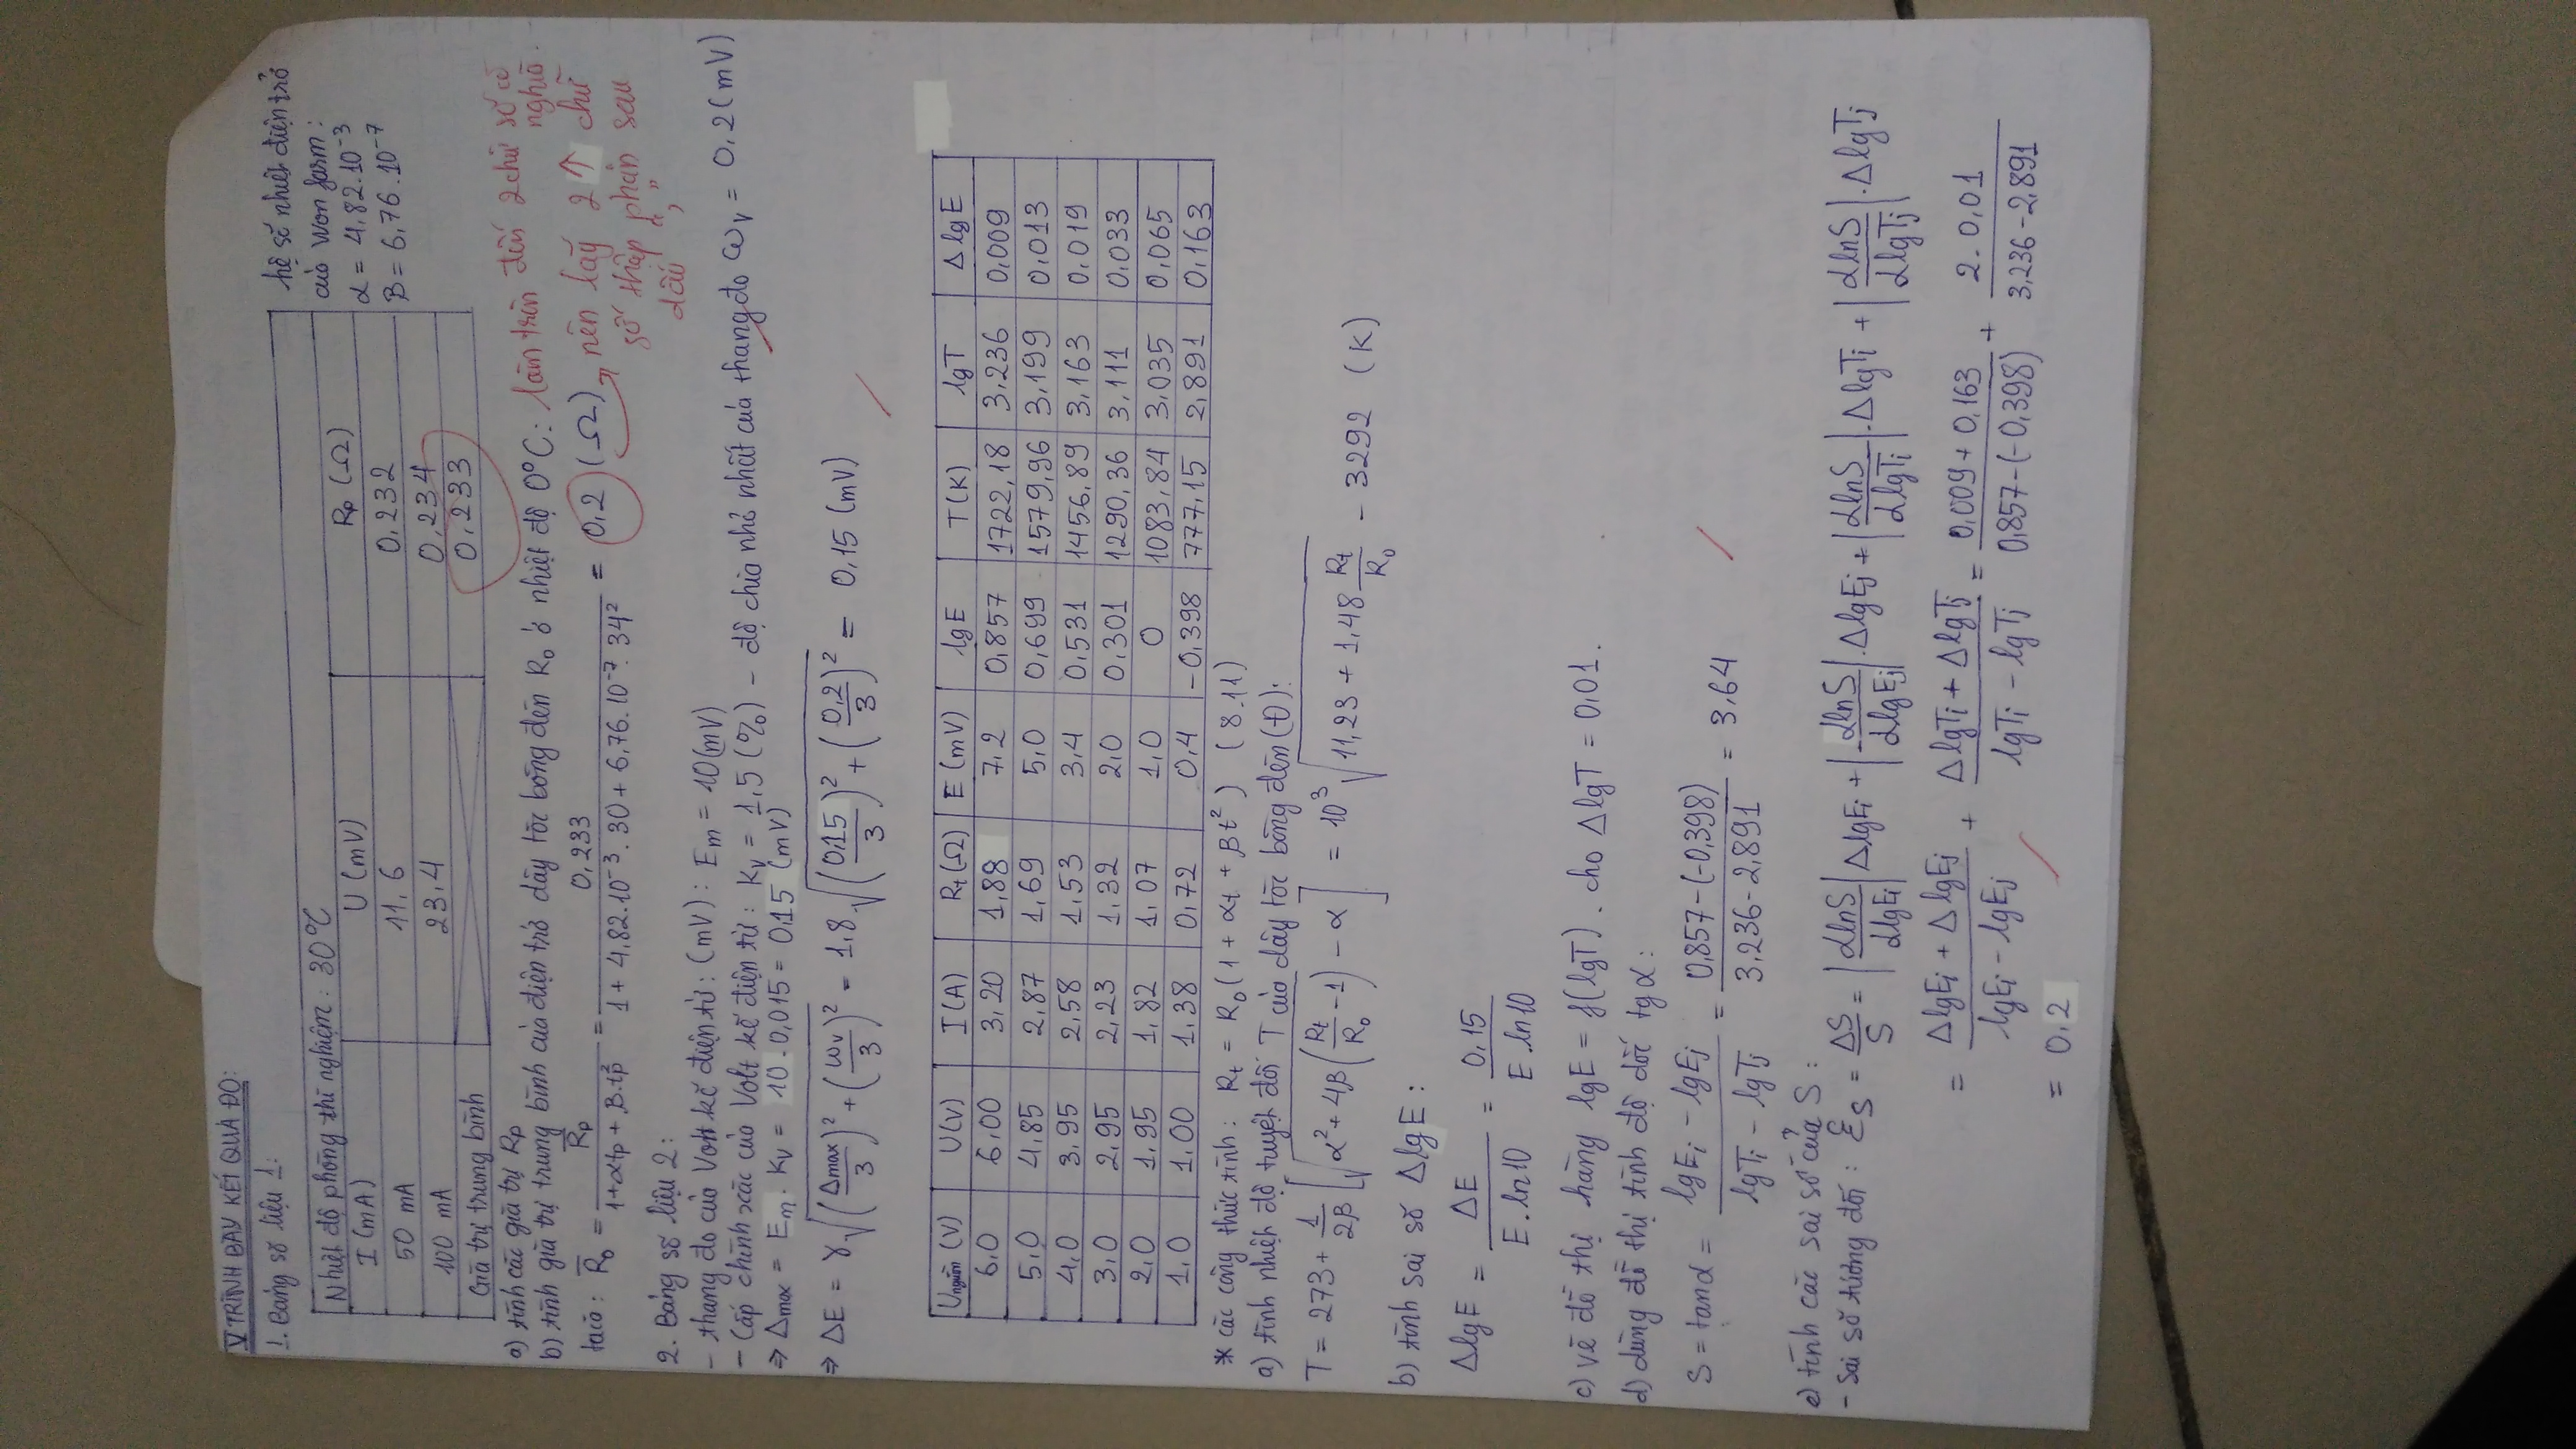 V TRÌNH BÀY KẾT QUẢ ĐO:
1. Bảng số liệu 1:
Nhiệt độ phòng thí nghiệm: 30°C
I (mA) U (mV) Rp (Ω)
50 mA 11,6 0,232
100 mA 23,4 0,234
Giá trị trung bình 0,233
hệ số nhiệt điện trở
của Wonfarm:
α = 4,82.10⁻³
β = 6,76.10⁻⁷
a) tính các giá trị Rp
b) tính giá trị trung bình của điện trở dây tóc bóng đèn R₀ ở nhiệt độ 0°C:
làm tròn đến 2 chữ số có
nghĩa.
ta có: R̅₀ = R̅p / (1+αtp + β.tp²) = 0,233 / (1 + 4,82.10⁻³.30 + 6,76.10⁻⁷.34²) = 0,2 (Ω)
nên lấy 2↑ chữ
số thập phân sau
dấu ","
2. Bảng số liệu 2:
- thang đo của Volt kế điện tử: (mV): Em = 10(mV)
- Cấp chính xác của Volt kế điện tử: Kv = 1,5 (%) - độ chia nhỏ nhất của thang đo ωv = 0,2(mV)
⇒ Δmax = Em . Kv = 10 . 0,015 = 0,15 (mV)
⇒ ΔE = γ√((Δmax/3)² + (ωv/3)²) = 1,8√((0,15/3)² + (0,2/3)²) = 0,15 (mV)
Unguồn (V) U(V) I(A) Rt(Ω) E (mV) lgE T(K) lgT ΔlgE
6,0 6,00 3,20 1,88 7,2 0,857 1722,18 3,236 0,009
5,0 4,85 2,87 1,69 5,0 0,699 1579,96 3,199 0,013
4,0 3,95 2,58 1,53 3,4 0,531 1456,89 3,163 0,019
3,0 2,95 2,23 1,32 2,0 0,301 1290,36 3,111 0,033
2,0 1,95 1,82 1,07 1,0 0 1083,84 3,035 0,065
1,0 1,00 1,38 0,72 0,4 -0,398 777,15 2,891 0,163
* các công thức tính: Rt = R₀(1 + αt + βt²) (8.11)
a) tính nhiệt độ tuyệt đối T của dây tóc bóng đèn (Đ):
T = 273 + 1/2β [√(α² + 4β(Rt/R₀ - 1)) - α] = 10³√(11,23 + 1,48 Rt/R₀) - 3292 (K)
b) tính sai số ΔlgE:
ΔlgE = ΔE / E.ln10 = 0,15 / E.ln10
c) vẽ đồ thị hàng lgE = f(lgT). cho ΔlgT = 0,01.
d) dùng đồ thị tính độ dốc tgα:
S = tanα = (lgEi - lgEj) / (lgTi - lgTj) = (0,857-(-0,398)) / (3,236-2,891) = 3,64
e) tính các sai số của S:
- Sai số tương đối: ℰS = ΔS/S = |∂lnS/∂lgEi| ΔlgEi + |∂lnS/∂lgEj|.ΔlgEj + |∂lnS/∂lgTi|.ΔlgTi + |∂lnS/∂lgTj|.ΔlgTj
= (ΔlgEi + ΔlgEj) / (lgEi - lgEj) + (ΔlgTi + ΔlgTj) / (lgTi - lgTj) = (0,009 + 0,163) / (0,857-(-0,398)) + 2.0,01 / (3,236-2,891)
= 0,2